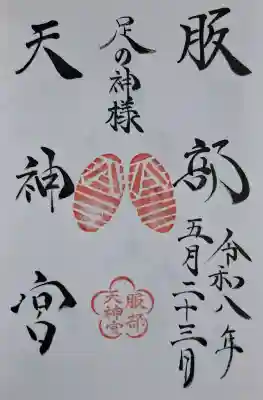 服部
天神宮
足の神様
令和八年
五月二十三日
服部
天神宮